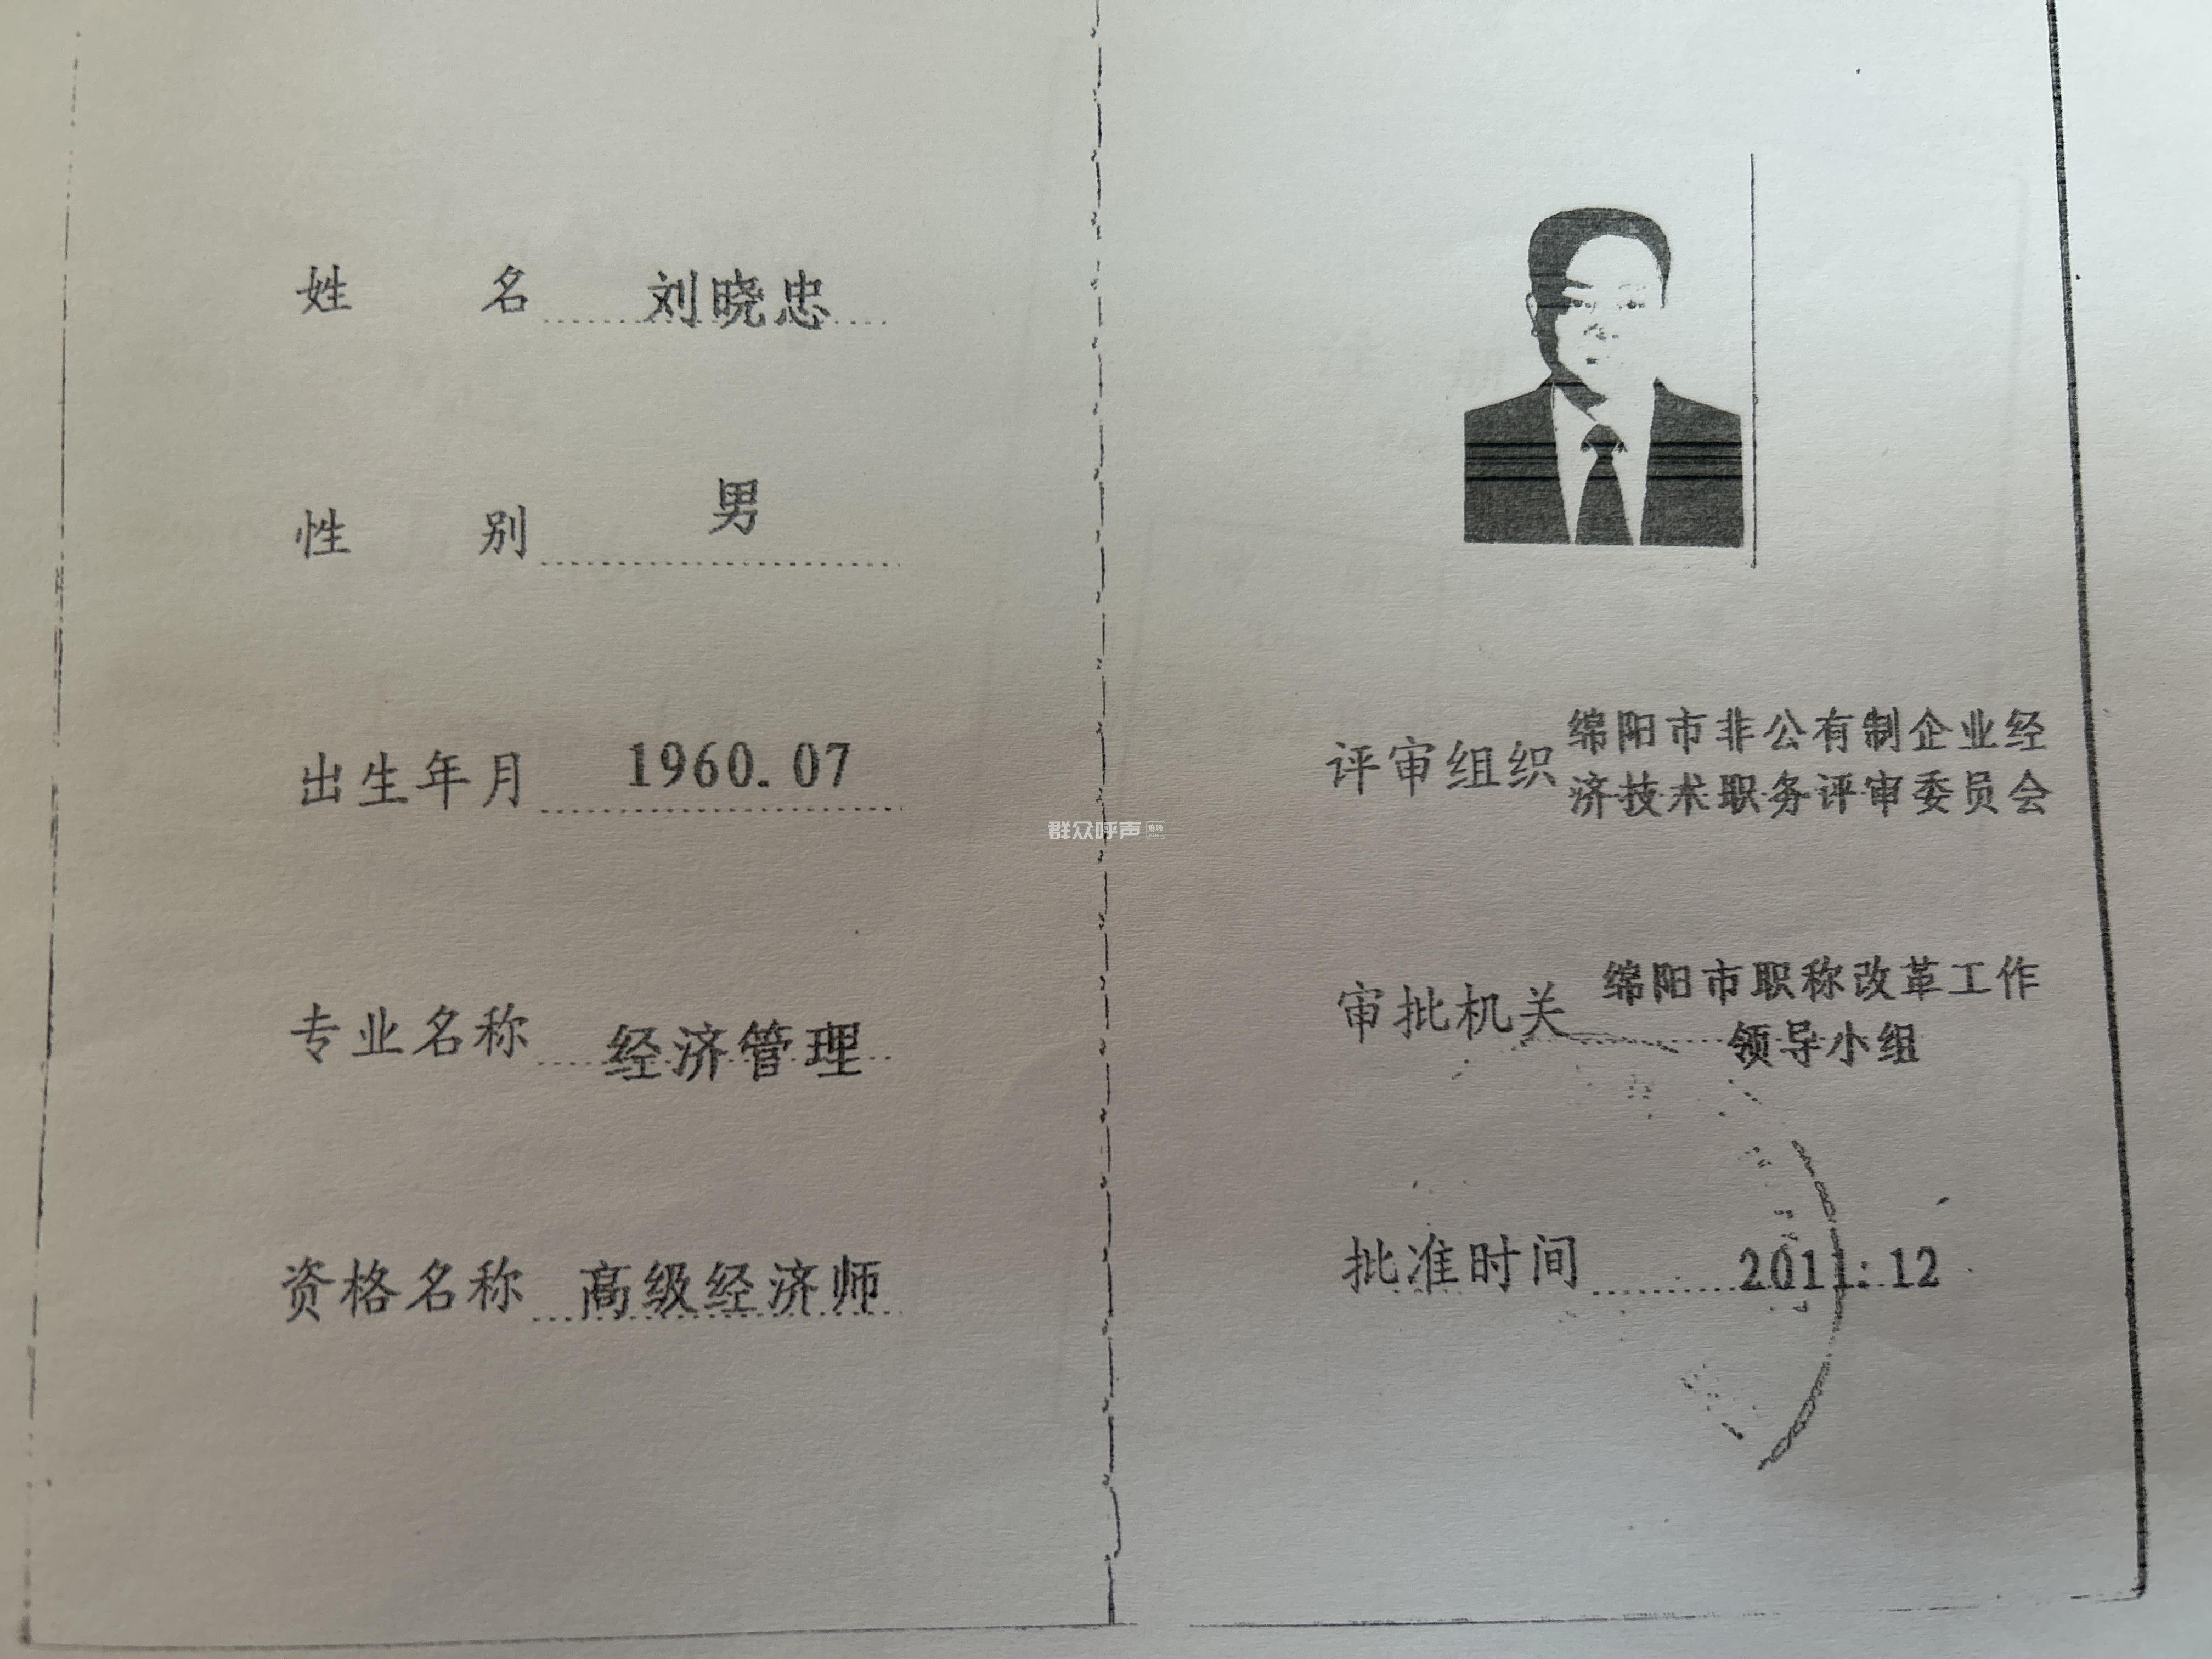 姓名 刘晓忠
性别 男
出生年月 1960.07
专业名称 经济管理
资格名称 高级经济师
评审组织 绵阳市非公有制企业经
济技术职务评审委员会
审批机关 绵阳市职称改革工作
领导小组
批准时间 2011.12
群众呼声